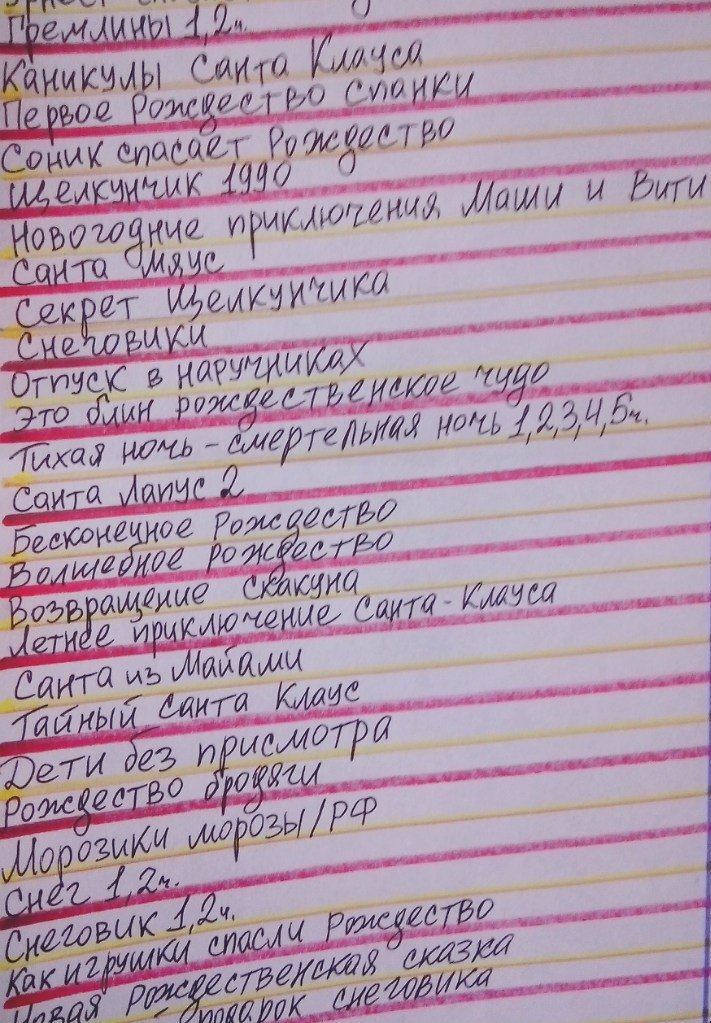 Гремлины 1,2ч.
Каникулы Санта Клауса
Первое Рождество Спанки
Соник спасает Рождество
Щелкунчик 1990
Новогодние приключения Маши и Вити
Санта Мяус
Секрет Щелкунчика
Снеговики
Отпуск в наручниках
Это блин рождественское чудо
Тихая ночь - смертельная ночь 1,2,3,4,5ч.
Санта Лапус 2
Бесконечное Рождество
Волшебное рождество
Возвращение скакуна
Летнее приключение Санта-Клауса
Санта из Майами
Тайный Санта Клаус
Дети без присмотра
Рождество бродяги
Морозики морозы/РФ
Снег 1,2ч.
Снеговик 1,2ч.
Как игрушки спасли Рождество
Новая Рождественская сказка
подарок снеговика